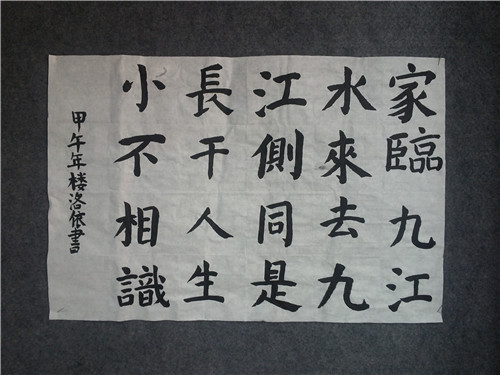 家臨九江
水來去九
江側同是
長干人生
小不相識
甲午年楼洛依書